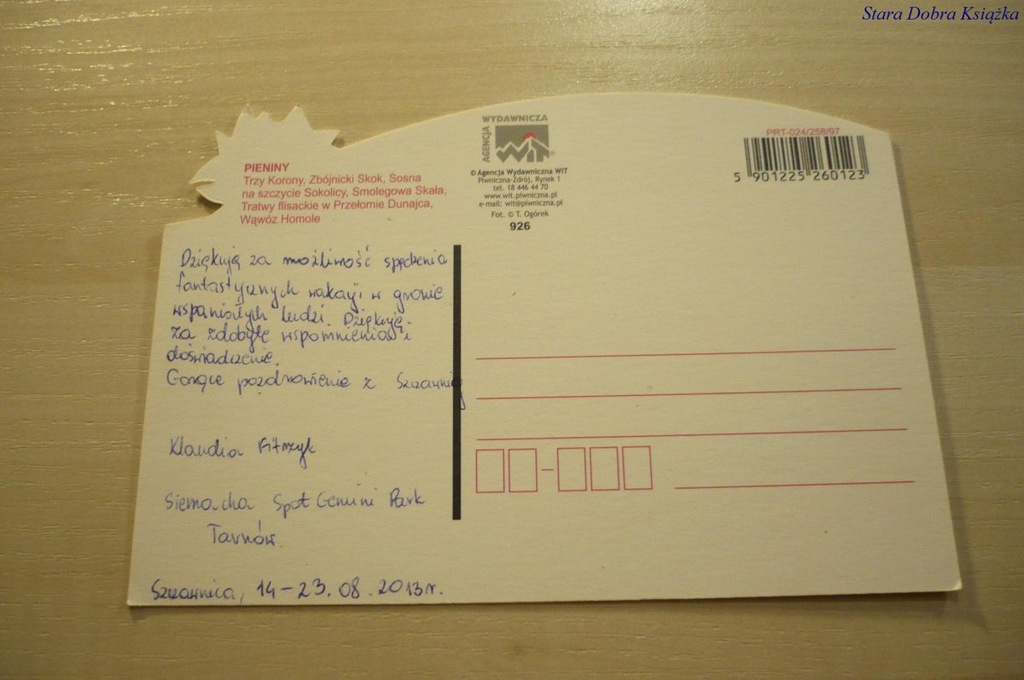 Stara Dobra Książka
PIENINY
Trzy Korony, Zbójnicki Skok, Sosna
na szczycie Sokolicy, Smolegowa Skała,
Tratwy flisackie w Przełomie Dunajca,
Wąwóz Homole
AGENCJA
WYDAWNICZA
WiT
© Agencja Wydawnicza WIT
Piwniczna-Zdrój, Rynek 1
tel. 18 446 44 70
www.wit.piwniczna.pl
e-mail: wit@piwniczna.pl
Fot. © T. Ogórek
926
PRT-024/258/97
5 901225 260123
Dziękuję za możliwość spędzenia
fantastycznych wakacji w gronie
wspaniałych ludzi. Dziękuję
za zdobyte wspomnienia i
doświadczenie.
Gorące pozdrowienie z Szczawnicy
Klaudia
Siemacha Spot Gemini Park
Tarnów.
Szczawnica, 14-23.08.2013r.